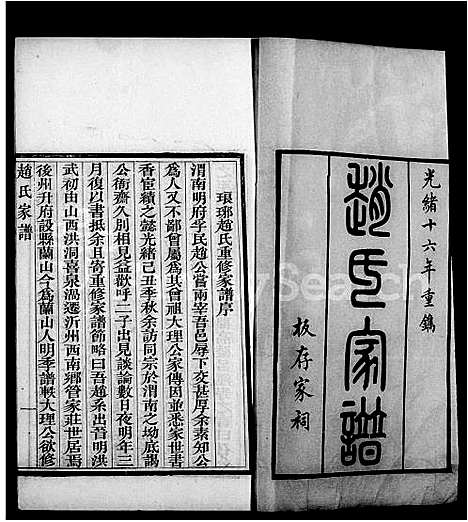 光緒十六年重鐫
趙氏家譜
板存家祠
琅琊趙氏重修家譜序
渭南明府孚民趙公嘗兩宰吾邑辱下交甚厚余素知公
為人又不鄙曾屬為其曾祖大理公家傳因並悉家世書
香宦績之懿光緒己丑季秋余訪同宗於渭南之坳底謁
公衙齋久別相見益歡呼二子出見談論數日夜明年三
月復以書抵余且寄重修家譜節略曰吾趙系出晉明洪
武初由山西洪洞喜泉渦遷沂州西南鄉管家莊世居焉
後州升府設縣蘭山今為蘭山人明季譜軼大理公欲修
趙氏家譜
Search